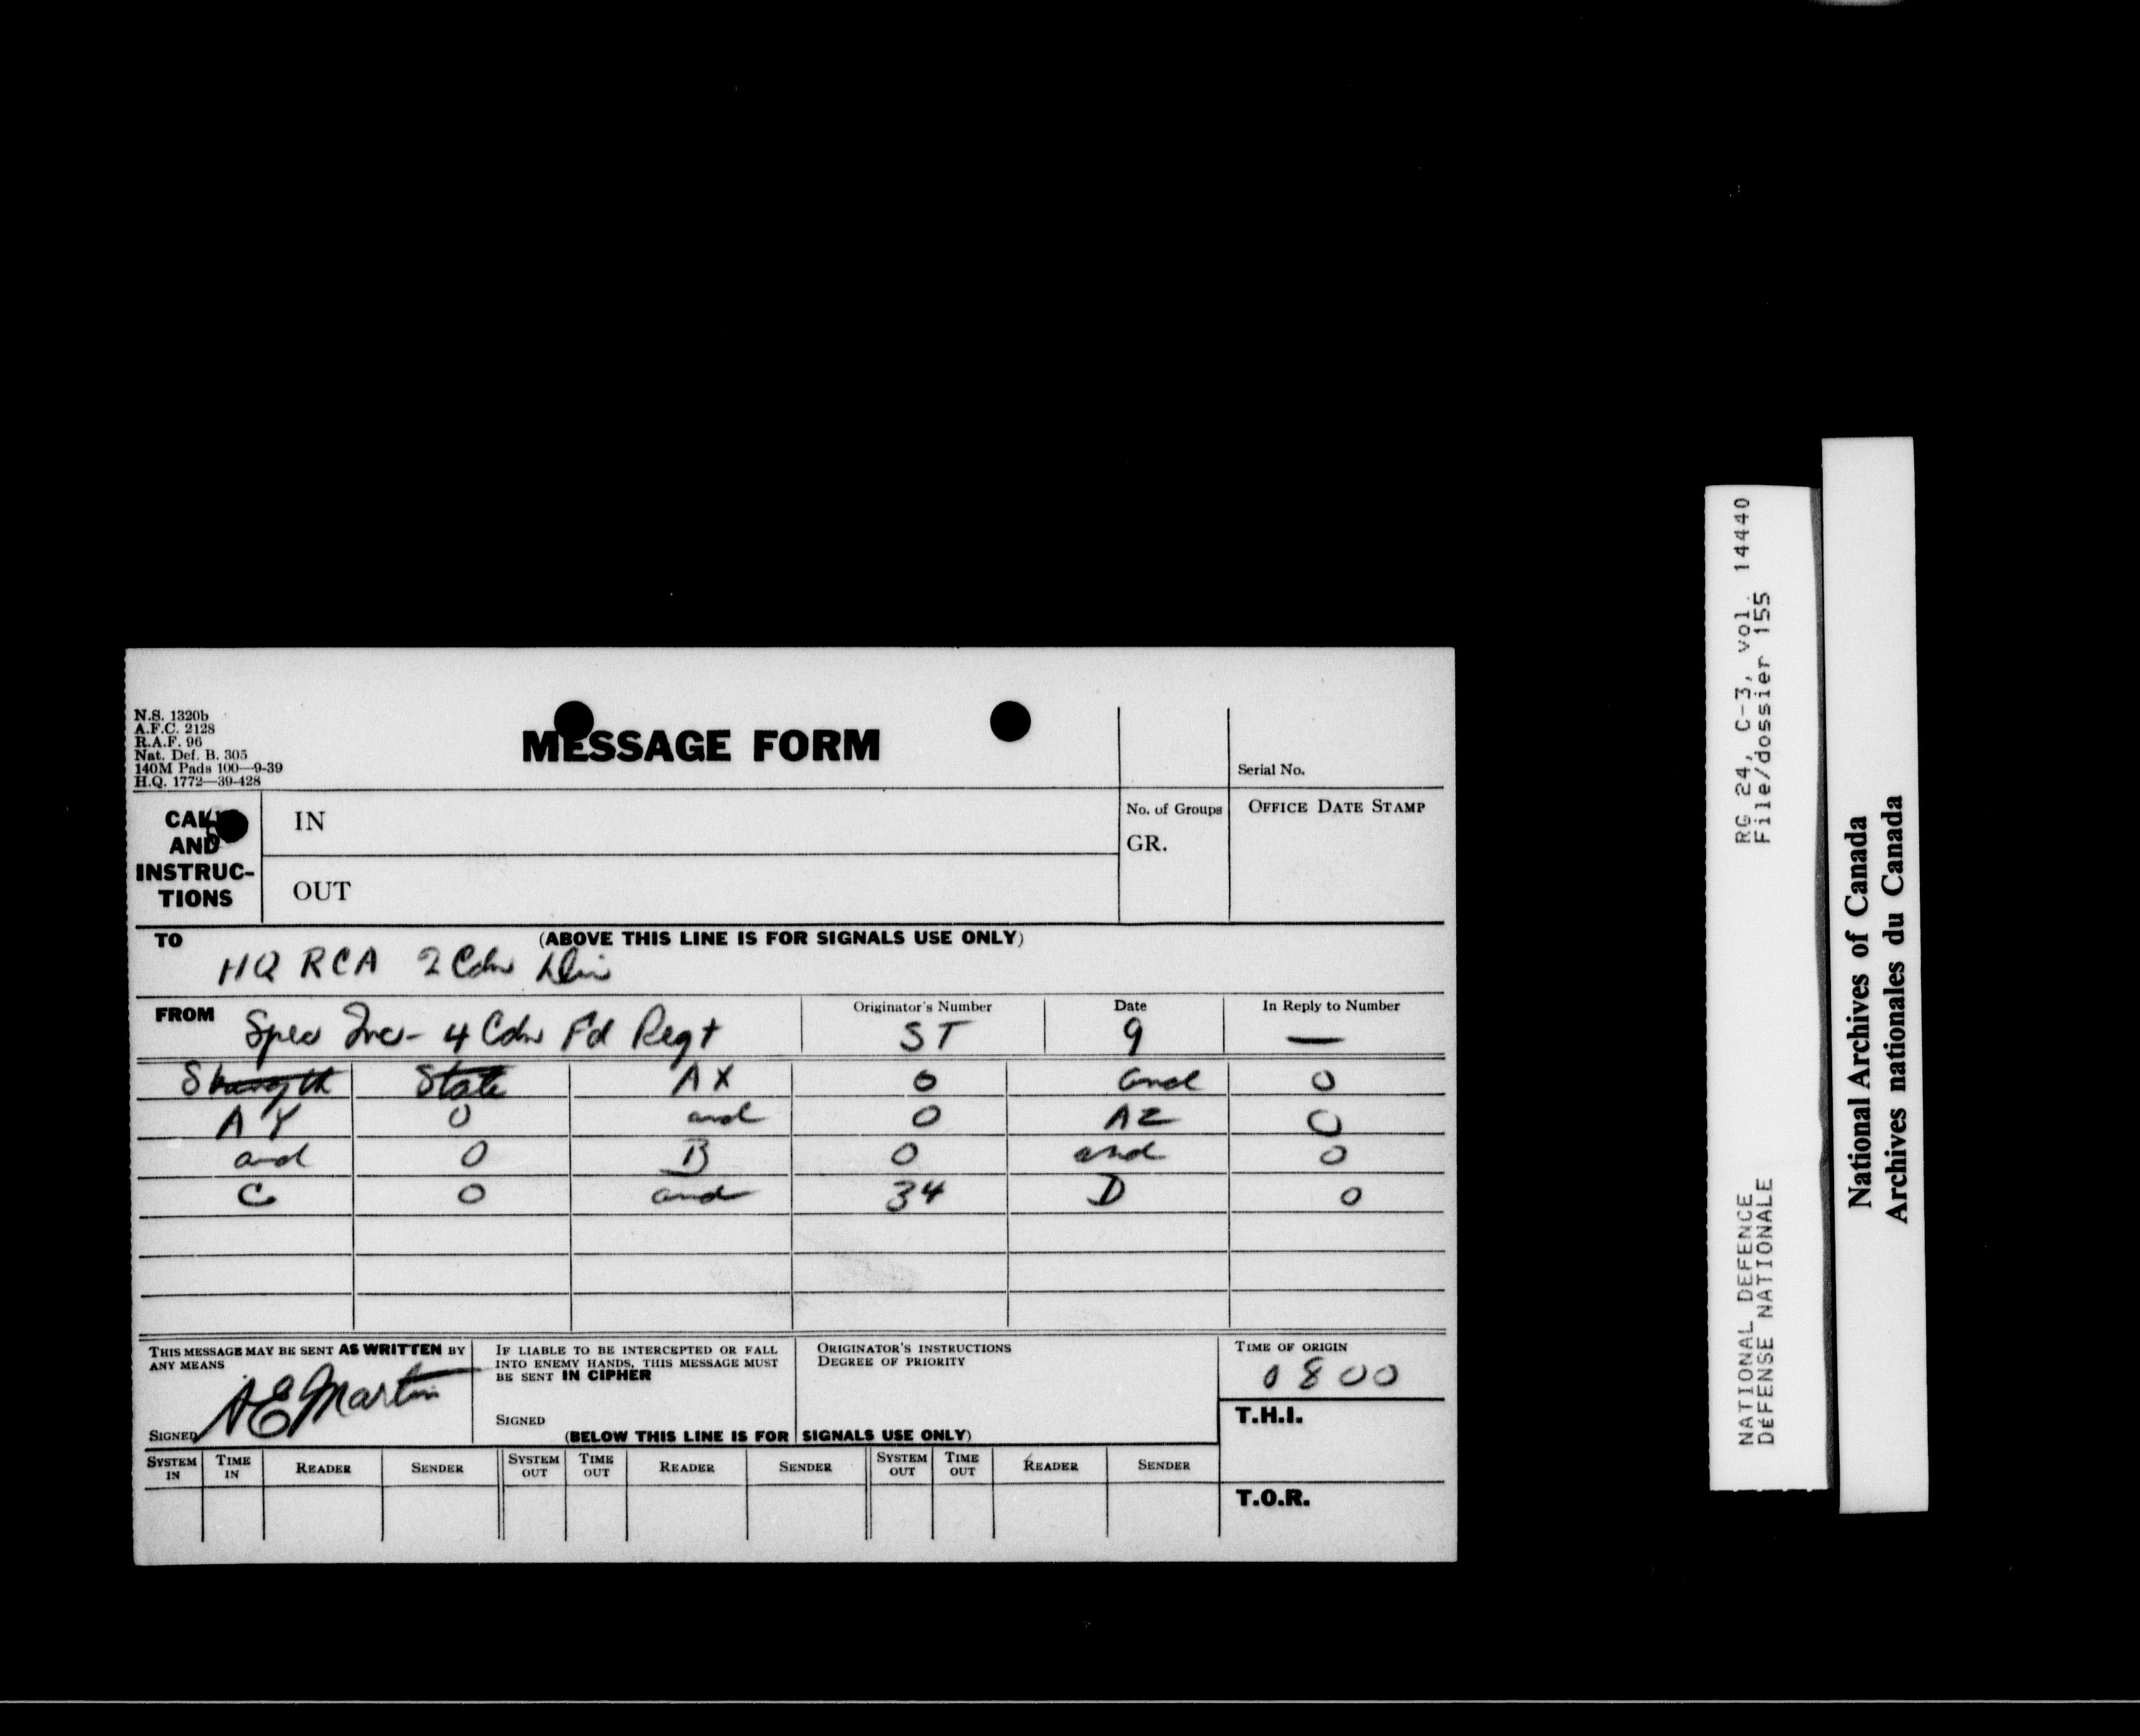 N.S. 1320b
A.F.C. 2128
R.A.F. 96
Nat. Def. B. 305
140M Pads 100—9-39
H.Q. 1772—39-428
MESSAGE FORM
Serial No.
CALL
AND
INSTRUC-
TIONS
IN
OUT
No. of Groups
GR.
OFFICE DATE STAMP
TO
(ABOVE THIS LINE IS FOR SIGNALS USE ONLY)
HQ RCA 2 Cdn Div
FROM
4 Cdn Fd Regt
Originator's Number
ST
Date
9
In Reply to Number
—
Strength State AX 0 and 0
AY 0 and 0 AZ 0
and 0 B 0 and 0
C 0 and 34 D 0
THIS MESSAGE MAY BE SENT AS WRITTEN BY
ANY MEANS
SIGNED AEMartin
IF LIABLE TO BE INTERCEPTED OR FALL
INTO ENEMY HANDS, THIS MESSAGE MUST
BE SENT IN CIPHER
SIGNED
ORIGINATOR'S INSTRUCTIONS
DEGREE OF PRIORITY
TIME OF ORIGIN
0800
T.H.I.
(BELOW THIS LINE IS FOR SIGNALS USE ONLY)
SYSTEM IN TIME IN READER SENDER SYSTEM OUT TIME OUT READER SENDER SYSTEM OUT TIME OUT READER SENDER
T.O.R.
NATIONAL DEFENCE RG 24, C-3, vol. 14440
DÉFENSE NATIONALE File/dossier 155
National Archives of Canada
Archives nationales du Canada